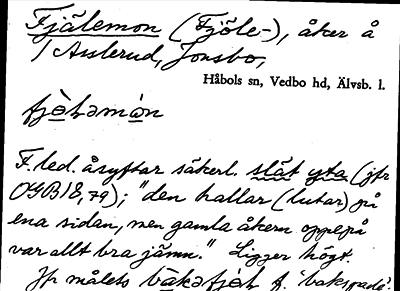 Fjälemon (Fjöle-), åker å
/ Asslerud, Jonsbo,
Håbols sn, Vedbo hd, Älvsb. l.
fjɵ̀ləmòn
F. led. åsyftar säkerl. slät yta (jfr
OGB 18, 79); "den hallar (lutar) på
ena sidan, men gamla åkern oppepå
var allt bra jämn." Ligger högt.
Jfr målets f. 'bakspade'.